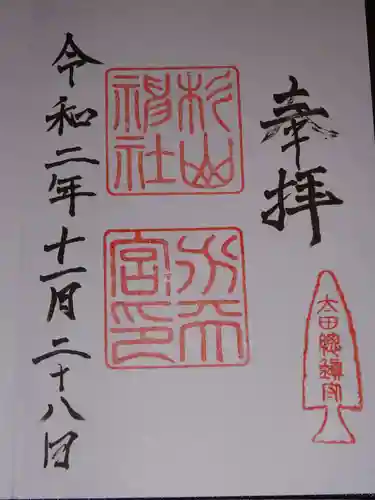 奉拝
太田総鎮守
杉山
神社
水天
宮印
令和二年十一月二十八日